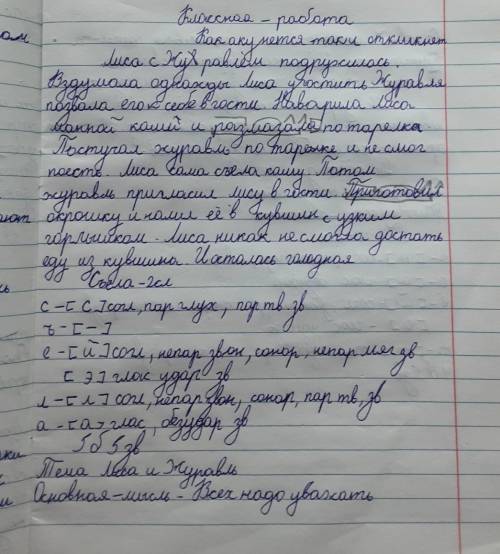 Классная - работа
Как акукнется так и откликнет
Лиса с Журавлём подружилась.
Вздумала однажды Лиса угостить Журавля
позвала его к себе в гости. Наварила Лиса
манной каши и размазала по тарелка.
Постучал журавль по тарелке и не смог
поесть. Лиса сама съела кашу. Потом
журавль пригласил лису в гости. Приготовил
окрошку и налил её в кувшин с узким
горлышком. Лиса никак не смогла достать
еду из кувшина. И осталась голодная
Съела-2сл
с-[с] согл, пар глух, пар тв, зв
ъ-[-]
е-[й] согл, непар звон, сонор, непар мяг зв
[э] глас удар зв
л-[л] согл, непар звон, сонор, пар тв, зв
а-[а] глас, безудар зв
5б 5зв
Тема Лиса и Журавль
Основная-мысль - Всех надо уважать